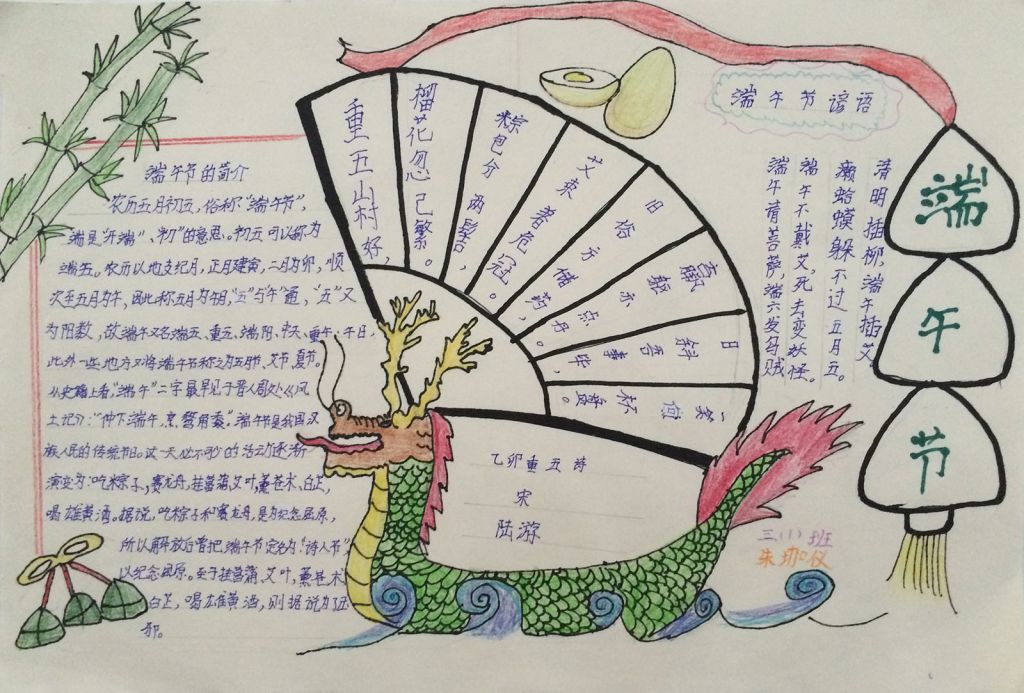 端午节的简介
农历五月初五，俗称"端午节"，
端是"开端"、"初"的意思。初五可以称为
端五。农历以地支纪月，正月建寅，二月为卯，顺
次至五月为午，因此称五月为午月，"五"与"午"通，"五"又
为阳数，故端午又名端五、重五、端阳、中天、重午、午日，
此外一些地方又将端午节称之为五月节、艾节、夏节。
从史籍上看，"端午"二字最早见于晋人周处《风
土记》："仲下端午，烹鹜角黍"，端午节是我国汉
族人民的传统节日。这一天必不可少的活动逐渐
演变为：吃粽子，赛龙舟，挂菖蒲艾叶，薰苍术、白芷，
喝雄黄酒。据说，吃粽子和赛龙舟，是为纪念屈原，
所以解放后曾把端午节定名为"诗人节"，
以纪念屈原。至于挂菖蒲，艾叶，薰苍术
白芷，喝雄黄酒，则据说为了压
邪。
重五山村好，
榴花忽已繁。
粽包分两髻，
艾束著危冠。
旧俗方储药，
羸躯亦点丹。
日斜吾事毕，
一笑向杯
乙卯重五诗
宋
陆游
端午节谚语
清明插柳端午插艾
癞蛤蟆躲不过五月五。
端午不戴艾，死去变妖怪。
端午请菩萨，端六发乌贼
端
午
节
三(1)班
朱
仪